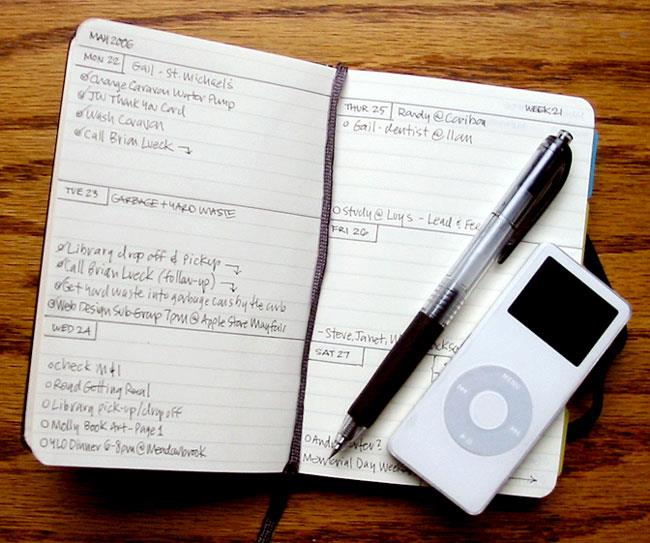 MAY 2006
MON 22 Gail - St. Michael's
Change Caravan Water Pump
JW Thank You Card
Wash Caravan
Call Brian Lueck
TUE 23 GARBAGE + YARD WASTE
Library drop off & pickup
Call Brian Lueck (follow-up)
Get yard waste into garbage cans by the curb
Web Design Sub-Group 7pm @ Apple Store Mayfair
WED 24
check
Read Getting Real
Library pick-up/dropoff
Molly Book Art - Page 1
YLO Dinner 6-8pm @ Meadowbrook
WEEK 21
THUR 25 Randy @ Caribou
Gail - dentist @ 11am
Study @ Luy's - Lead &
FRI 26
- Steve, Janet,
SAT 27
Memorial Day
MENU